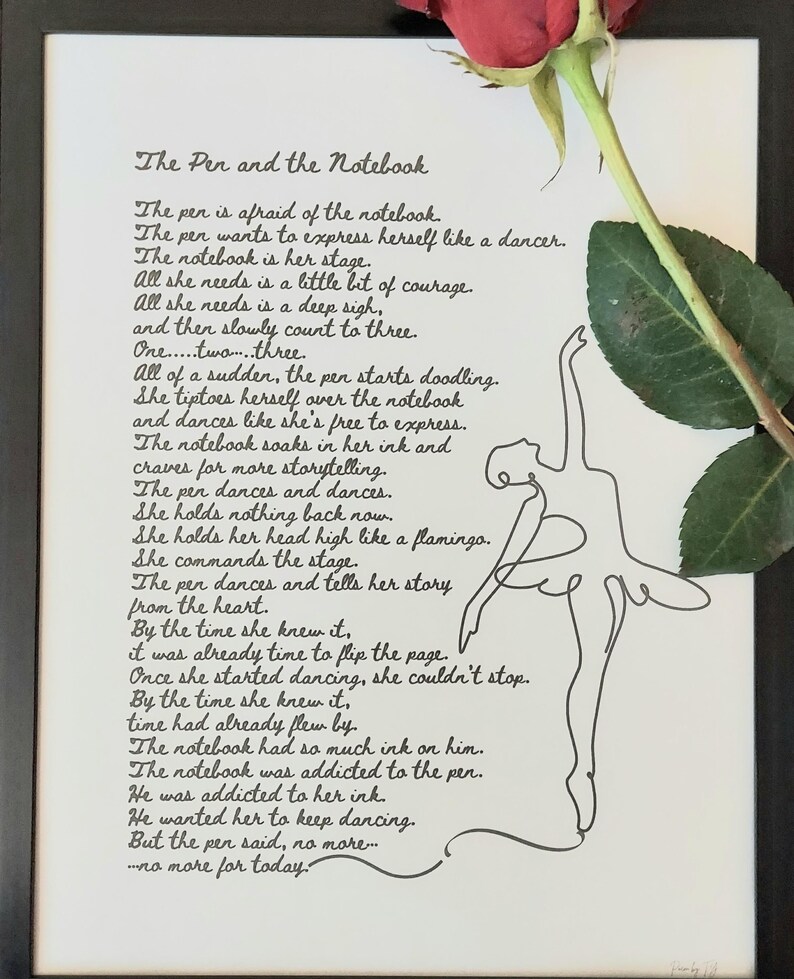 The Pen and the Notebook
The pen is afraid of the notebook.
The pen wants to express herself like a dancer.
The notebook is her stage.
All she needs is a little bit of courage.
All she needs is a deep sigh,
and then slowly count to three.
One.....two.....three.
All of a sudden, the pen starts doodling.
She tiptoes herself over the notebook
and dances like she's free to express.
The notebook soaks in her ink and
craves for more storytelling.
The pen dances and dances.
She holds nothing back now.
She holds her head high like a flamingo.
She commands the stage.
The pen dances and tells her story
from the heart.
By the time she knew it,
it was already time to flip the page.
Once she started dancing, she couldn't stop.
By the time she knew it,
time had already flew by.
The notebook had so much ink on him.
The notebook was addicted to the pen.
He was addicted to her ink.
He wanted her to keep dancing.
But the pen said, no more...
...no more for today.